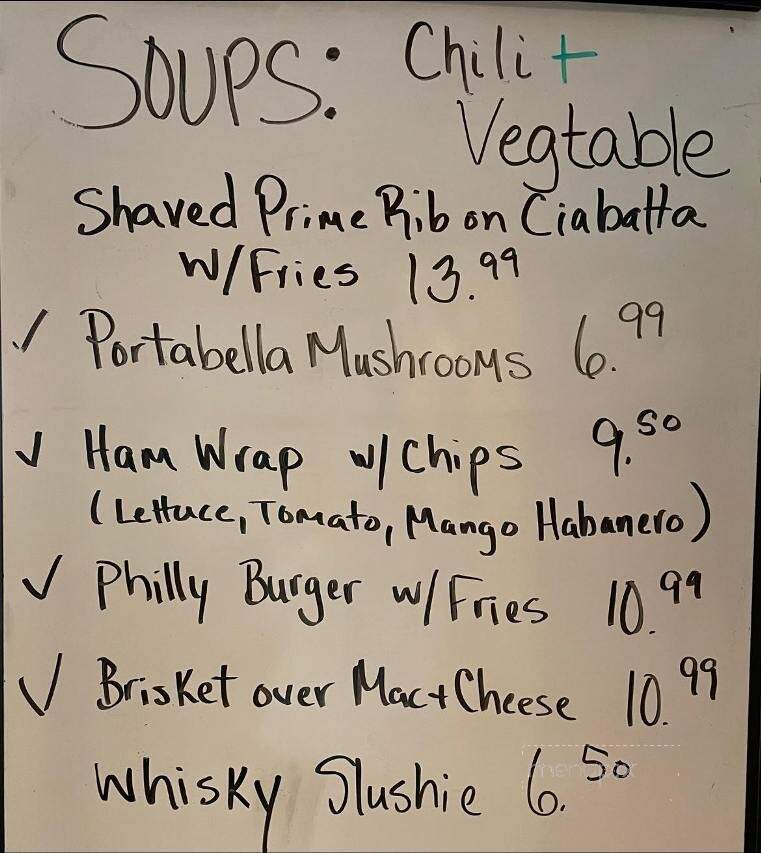 SOUPS: Chili +
Vegtable
Shaved Prime Rib on Ciabatta
W/Fries 13.99
✓ Portabella Mushrooms 6.99
✓ Ham Wrap w/ Chips 9.50
(Lettuce, Tomato, Mango Habanero)
✓ Philly Burger w/ Fries 10.99
✓ Brisket over Mac + Cheese 10.99
Whisky Slushie 6.50